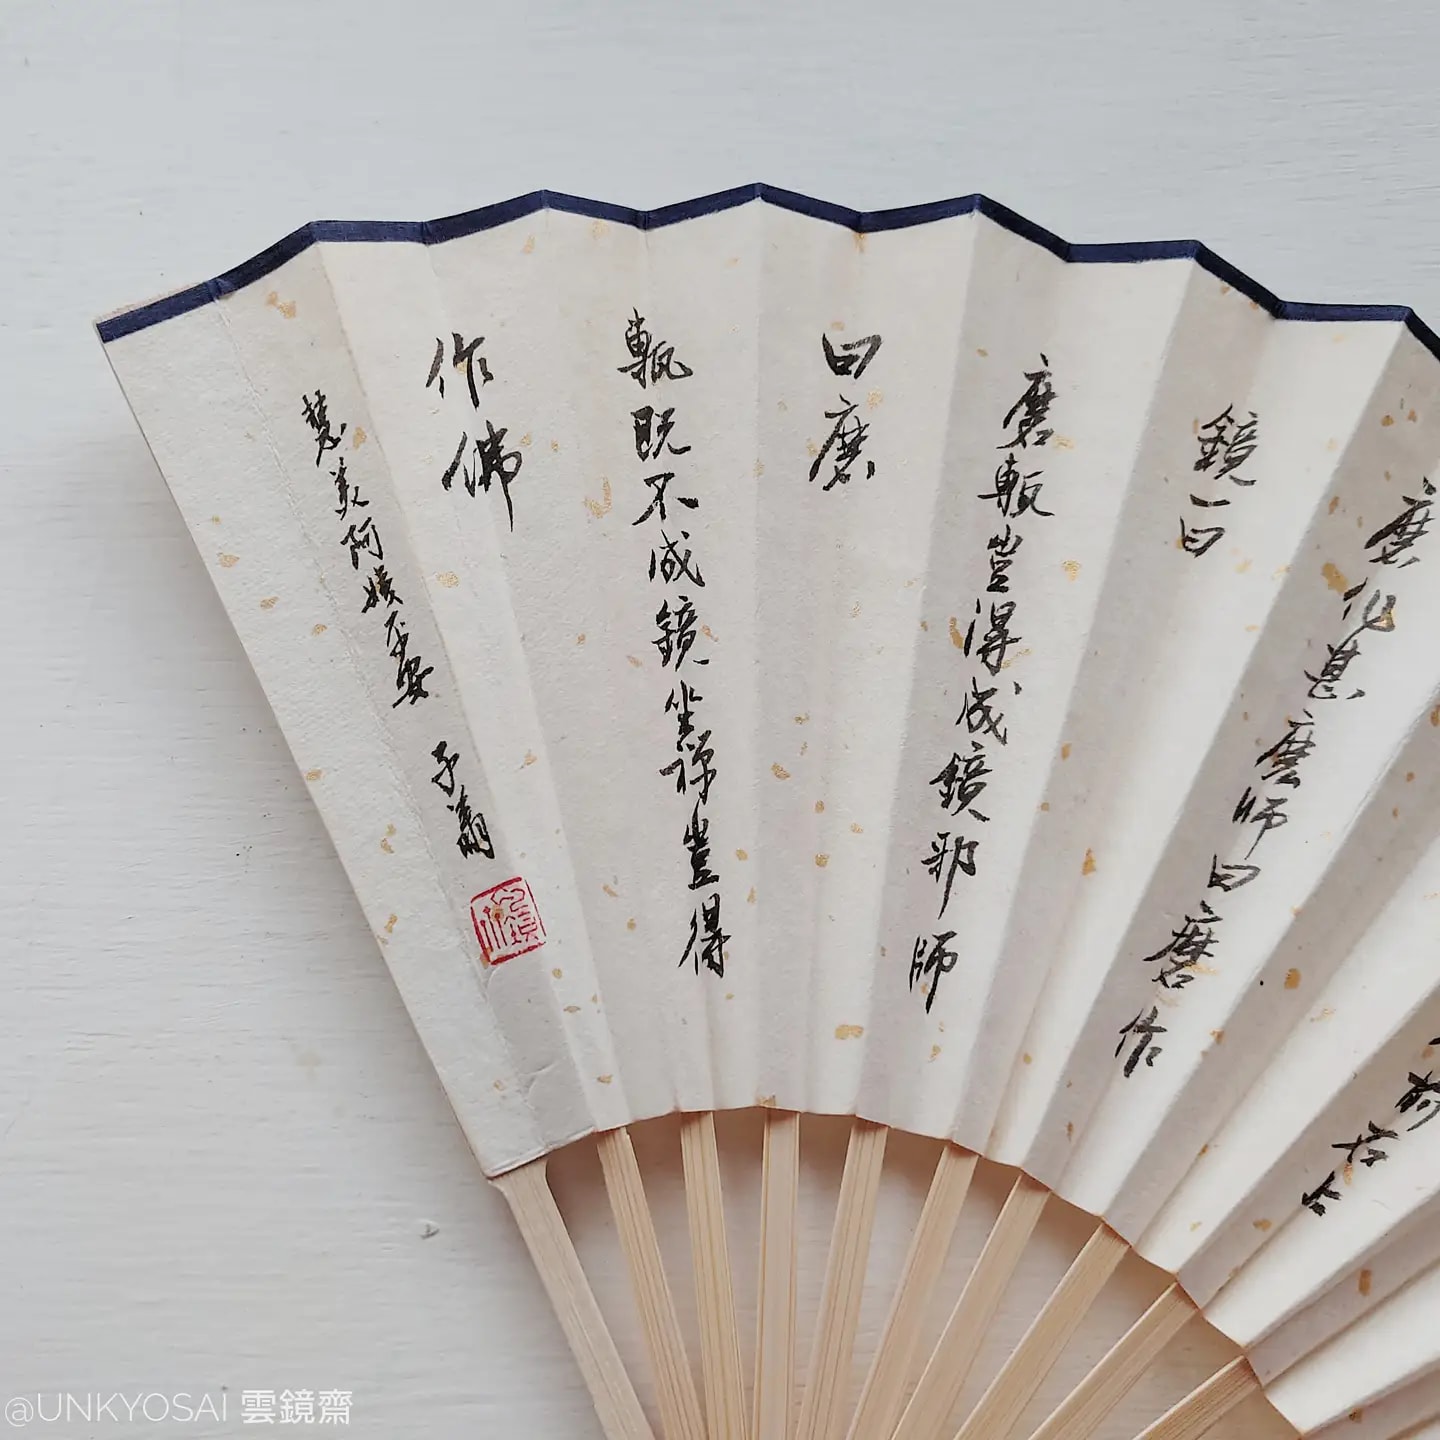 前石上
磨作甚麼師曰磨作
鏡一曰
磨甎豈得成鏡耶師
曰磨
甎既不成鏡坐禪豈得
作佛
慧美阿姨平安 子瀟
@UNKYOSAI 雲鏡齋